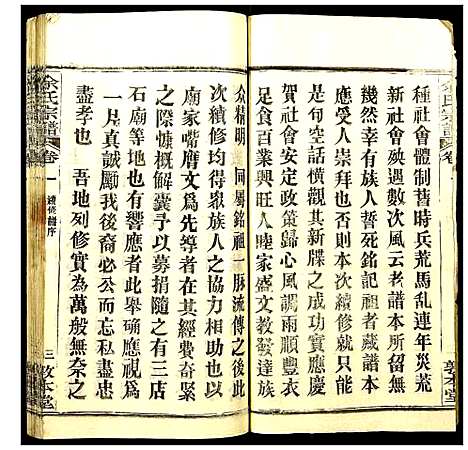 種社會體制舊時兵荒馬亂連年災荒
新社會殃遇數次風云老譜本所留無
幾然幸有族人誓死銘記祖者藏譜本
應受人崇拜也否則本次續修就只可
是空話橫觀其新牒之成功應謝及慶
賀社會安定政策歸心風調雨順豐衣
足食百獸興旺睦家盛文教發達族
众精明一同屬銘祖一脉流傳之後此
次續修均得衆族人之協力相併不過
廟家嘴庸文爲先等者因其經費奇緊
之際慷概解囊予以募捐清之有三店
石廟等地也有響應者此舉確應視爲
一片真誠勵我後裔必公而忘私盡忠
盡孝也　吾地列修實爲萬般無奈之
余氏宗譜
卷一
續修譜序
三
敦本堂